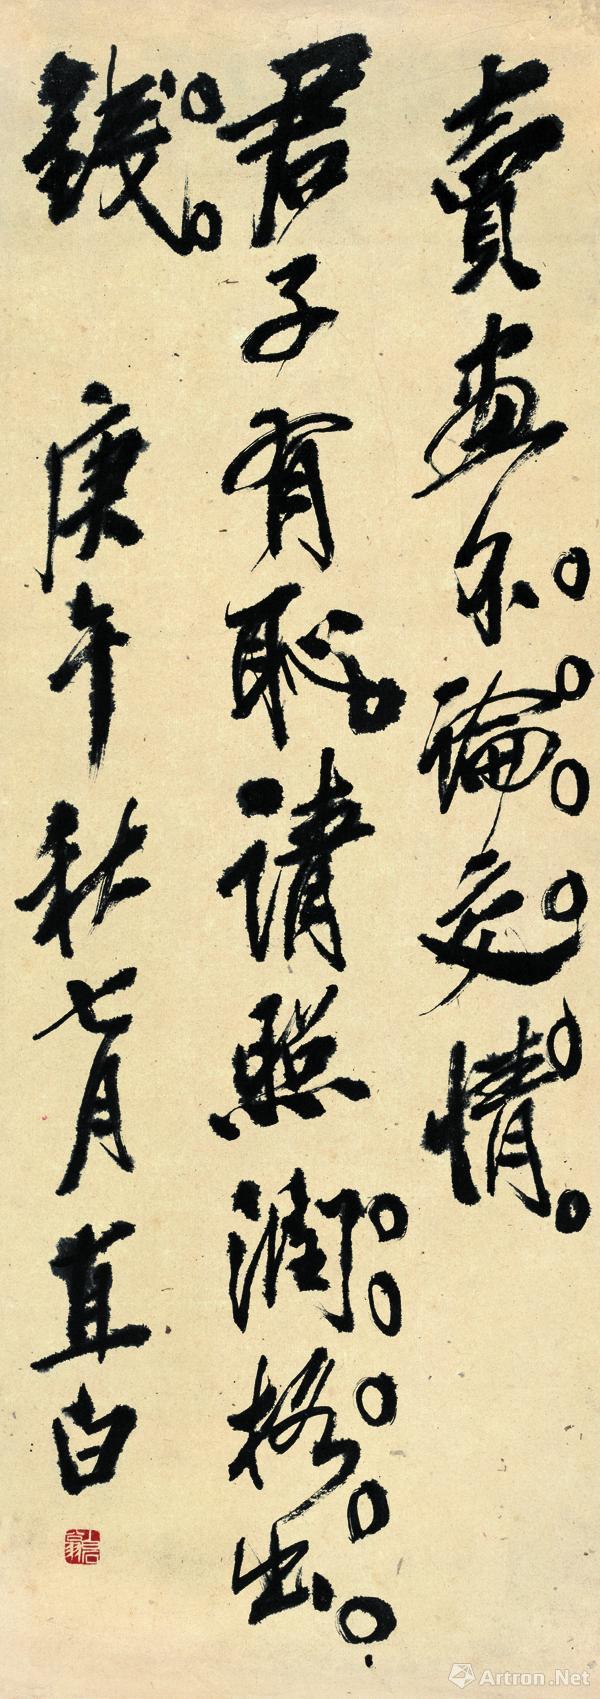 賣畫不論交情
君子有恥請照潤格出
錢
庚午秋七月直白
Artron.Net